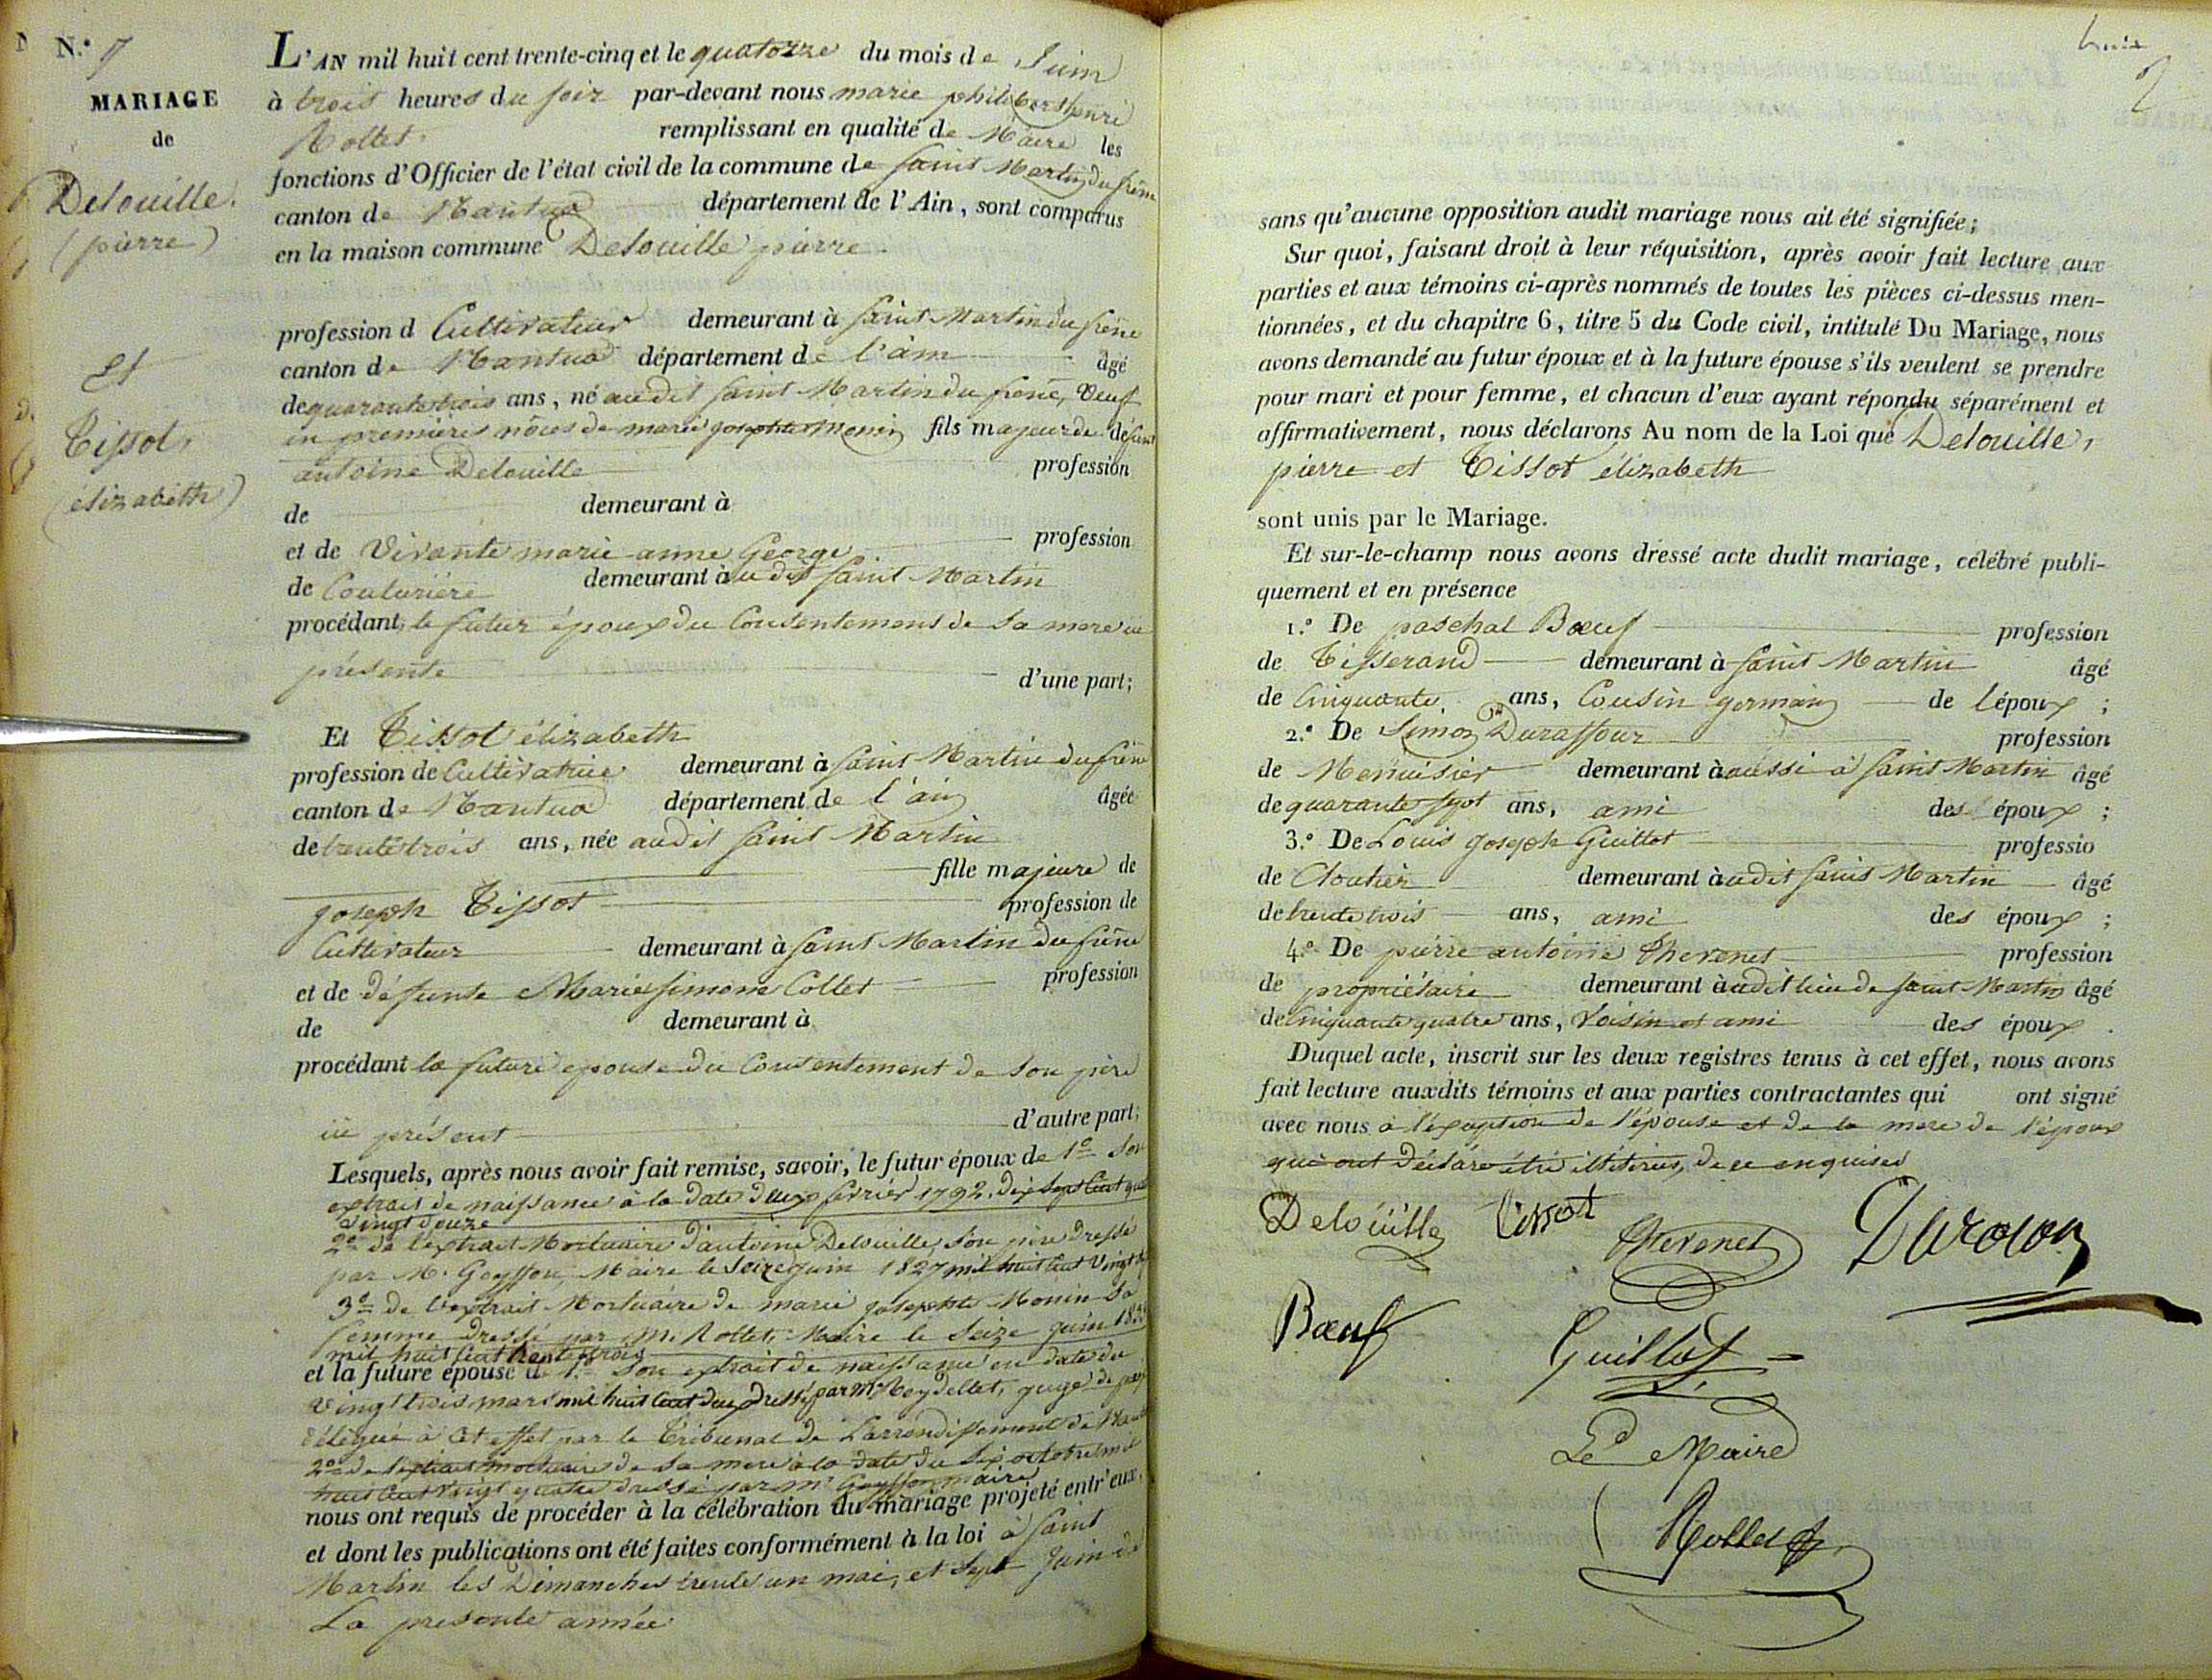 N.º 7
MARIAGE
de
Delouille
(pierre)
Et
Tissot,
(élizabeth)
L'AN mil huit cent trente-cinq et le quatorze du mois de Juin
à trois heures du soir par-devant nous marie philibert henri
Rollet remplissant en qualité de Maire les
fonctions d'Officier de l'état civil de la commune de saint Martin du frêne
canton de Nantua département de l'Ain, sont comparus
en la maison commune Delouille pierre
profession d Cultivateur demeurant à saint Martin du frêne
canton de Nantua département de l'ain âgé
de quarante trois ans, né audit saint Martin du frêne, Veuf
en premières nôces de marie josephte Monin fils majeur de défunt
antoine Delouille profession
de demeurant à
et de Vivante marie anne George profession
de Couturière demeurant à udit saint Martin
procédant, le futur époux du Consentement de sa mere ici
présente d'une part;
Et Tissot élizabeth
profession de Cultivatrice demeurant à saint Martin du frêne
canton de Nantua département de l'ain âgée
de trente trois ans, née audit saint Martin
fille majeure de
joseph Tissot profession de
Cultivateur demeurant à saint Martin du frêne
et de défunte Marie simone Collet profession
de demeurant à
procédant la future epouse du Consentement de son père
ici présent d'autre part;
Lesquels, après nous avoir fait remise, savoir, le futur époux de 1º son
extrait de naissance à la date deux février 1792. dix sept Cent quatre
vingt douze
2º de l'extrait Mortuaire d'antoine Delouille, son père dressé
par M. Goyffon, Maire le seize juin 1827 mil huit Cent vingt sept
3º de l'extrait Mortuaire de marie josephte Monin sa
femme dressé par M. Rollet, Maire le seize juin 1833
mil huit Cent trente trois
et la future épouse de 1.º son extrait de naissance en date du
vingt trois mars mil huit Cent deux dressé par Mr Reydellet, juge de paix
délégué à cet effet par le Tribunal de L'arrondissement de Nantua
2º de l'extrait mortuaire de sa mere à la date du six octobre mil
huit Cent vingt quatre dressé par mr Goyffon maire
nous ont requis de procéder à la célébration du mariage projeté entr'eux,
et dont les publications ont été faites conformément à la loi à saint
Martin les Dimanches trente un mai, et sept Juin de
La presente année
huit
sans qu'aucune opposition audit mariage nous ait été signifiée;
Sur quoi, faisant droit à leur réquisition, après avoir fait lecture aux
parties et aux témoins ci-après nommés de toutes les pièces ci-dessus men-
tionnées, et du chapitre 6, titre 5 du Code civil, intitulé Du Mariage, nous
avons demandé au futur époux et à la future épouse s'ils veulent se prendre
pour mari et pour femme, et chacun d'eux ayant répondu séparément et
affirmativement, nous déclarons Au nom de la Loi que Delouille,
pierre et Tissot élizabeth
sont unis par le Mariage.
Et sur-le-champ nous avons dressé acte dudit mariage, célébré publi-
quement et en présence
1.º De paschal Bœuf profession
de Tisserand demeurant à saint Martin âgé
de Cinquante ans, Cousin germain de l'époux ;
2.º De Simon Duraffour profession
de Menuisier demeurant à aussi à saint Martin âgé
de quarante sept ans, ami des époux ;
3.º De Louis joseph Guillot professio
de Cloutier demeurant à udit saint Martin âgé
de trente trois ans, ami des époux ;
4.º De pierre antoine Thevenet profession
de propriétaire demeurant à udit lieu de saint Martin âgé
de Cinquante quatre ans, Voisin et ami des époux.
Duquel acte, inscrit sur les deux registres tenus à cet effet, nous avons
fait lecture auxdits témoins et aux parties contractantes qui ont signé
avec nous à l'exception de l'épouse et de la mere de l'époux
qui ont déclaré être illitérées, de ce enquises
Delouille Tissot Thevenet
Bœuf Guillot
Le Maire
Rollet